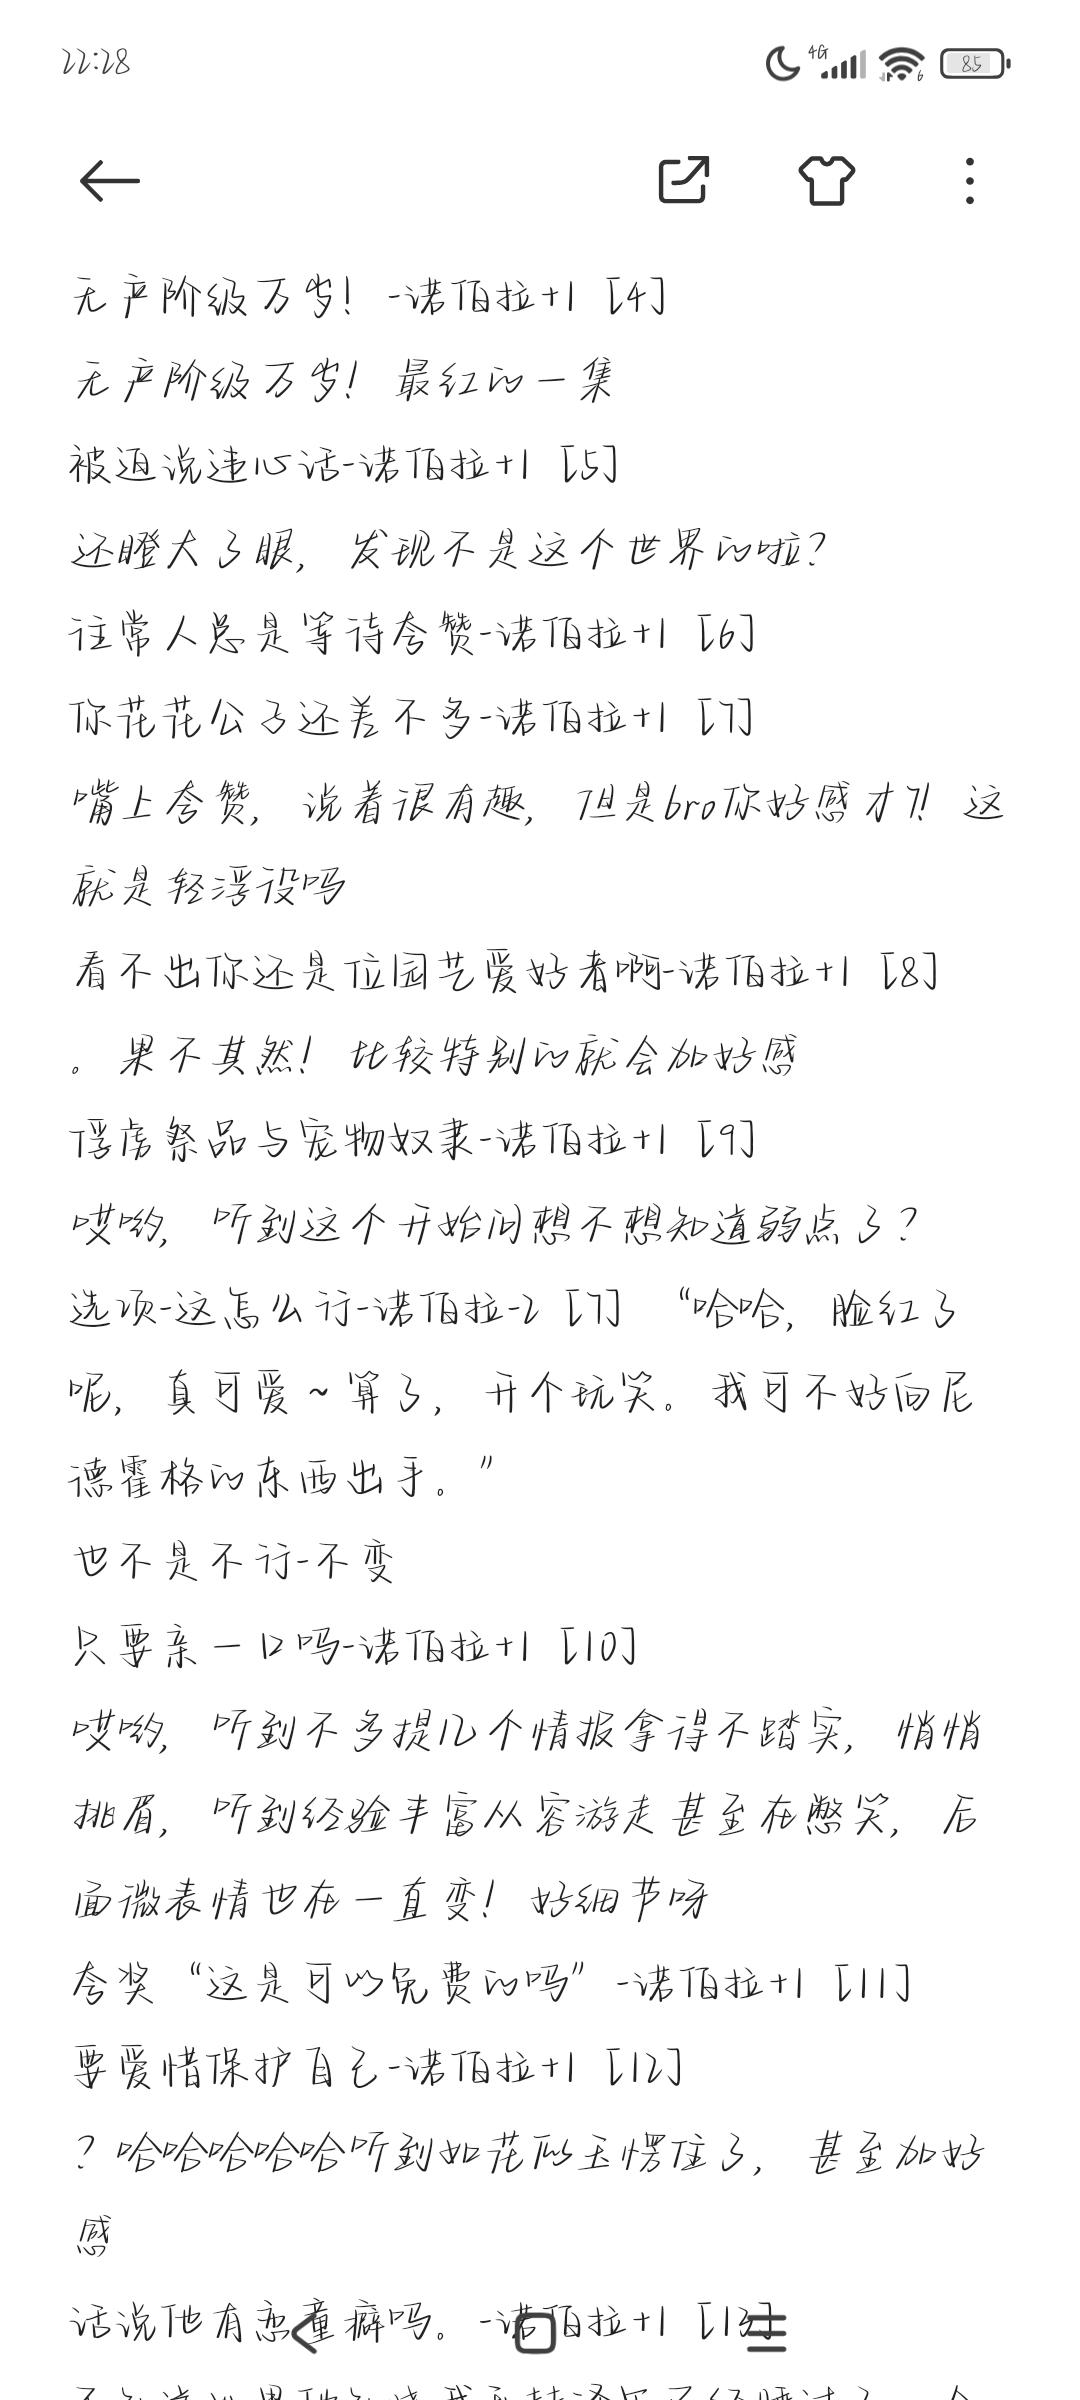 22:28
4G
6
85
无产阶级万岁！-诺伯拉+1［4］
无产阶级万岁！最红的一集
被迫说违心话-诺伯拉+1［5］
还瞪大了眼，发现不是这个世界的啦？
往常人总是等待夸赞-诺伯拉+1［6］
你花花公子还差不多-诺伯拉+1［7］
嘴上夸赞，说着很有趣，但是bro你好感才7！这
就是轻浮设吗
看不出你还是位园艺爱好者啊-诺伯拉+1［8］
。果不其然！比较特别的就会加好感
俘虏祭品与宠物奴隶-诺伯拉+1［9］
哎哟，听到这个开始问想不想知道弱点了？
选项-这怎么行-诺伯拉-2［7］“哈哈，脸红了
呢，真可爱~算了，开个玩笑。我可不好向尼
德霍格的东西出手。”
也不是不行-不变
只要亲一口吗-诺伯拉+1［10］
哎哟，听到不多提几个情报拿得不踏实，悄悄
挑眉，听到经验丰富从容游走甚至在憋笑，后
面微表情也在一直变！好细节呀
夸奖“这是可以免费的吗”-诺伯拉+1［11］
要爱惜保护自己-诺伯拉+1［12］
？哈哈哈哈哈听到如花似玉愣住了，甚至加好
感
话说他有恋童癖吗。-诺伯拉+1［13］